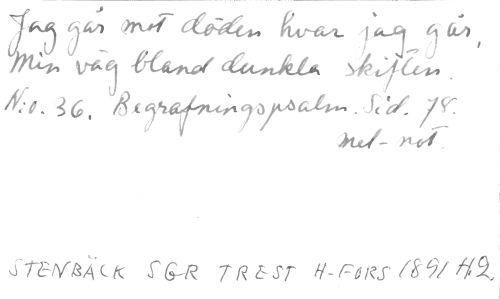 Jag går mot döden hvar jag går,
Min väg bland dunkla skiften.
N:o. 36. Begrafningspsalm. Sid. 78.
mel-not.
STENBÄCK SGR TREST H-FORS 1891 H.2.